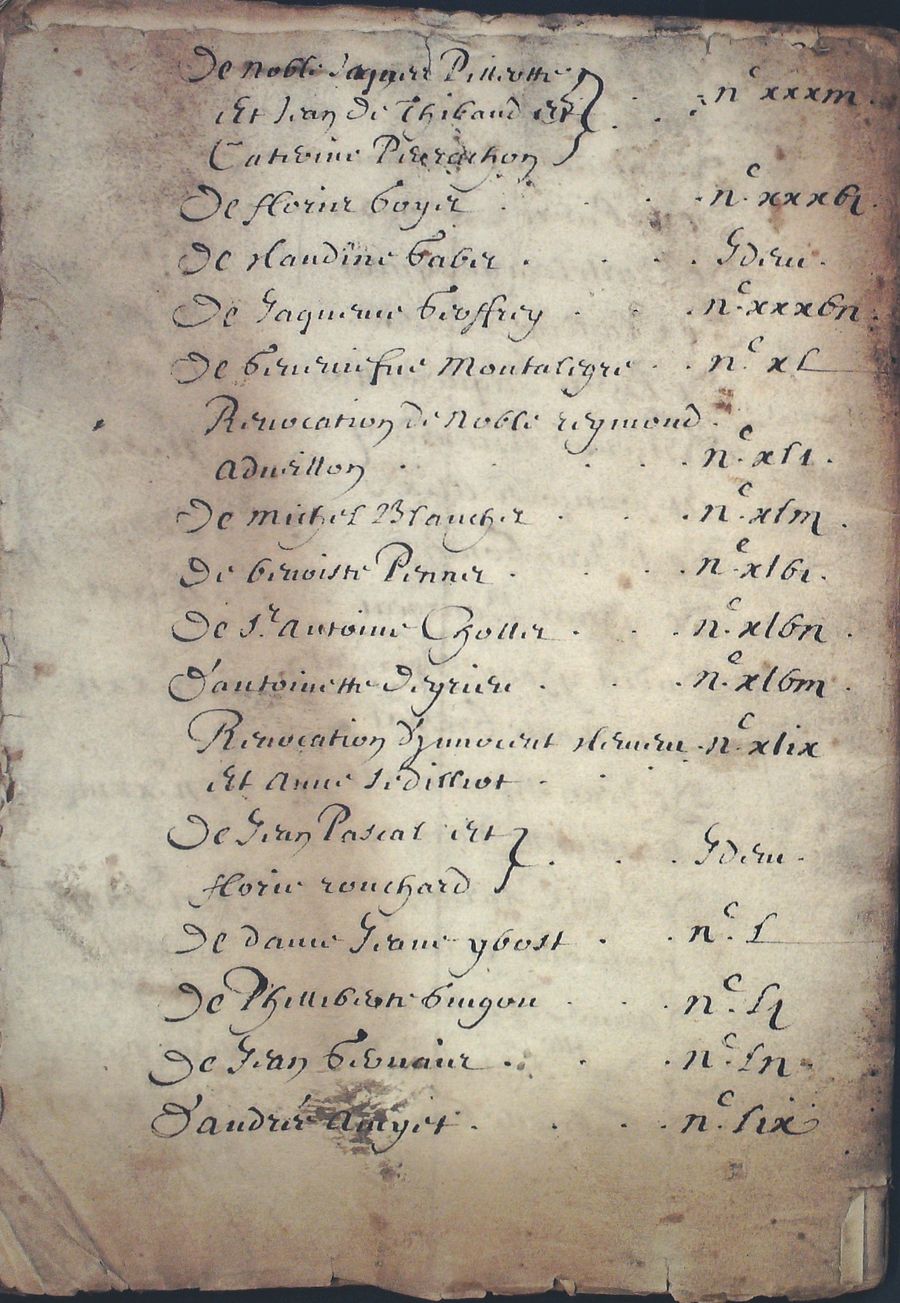 De noble Jaques Pilleotte
Et Jean De Thibaud Et } nc xxxiii
Caterine Pierrachon
De florie boyer . . . nc. xxxvi
De Claudine faber . . . . Idem.
De Jaqueme Geoffrey . . . nc. xxxvii
De Geneviefue Montalegre . . nc. xl
Revocation de noble reymond
adueillon . . . . nc. xli.
De michel Blancher . . . nc. xliii.
De benoiste Penner . . . nc. xlvi.
De Sr. antoine Chollier . . . nc. xlvii.
D'antoinette Deyrieu . . . nc. xlviii.
Revocation d'Innocent Clemen . nc. xlix
Et Anne Sedilliot . .
De Jean Pascal Et } . . . Idem.
florie rouchard
De dame Jeane ybost . . nc. l
De Philliberte Guigou . . . nc. li
De Jean Gervaix . . . nc. lii
D'andrée Auyet . . . . nc. lix